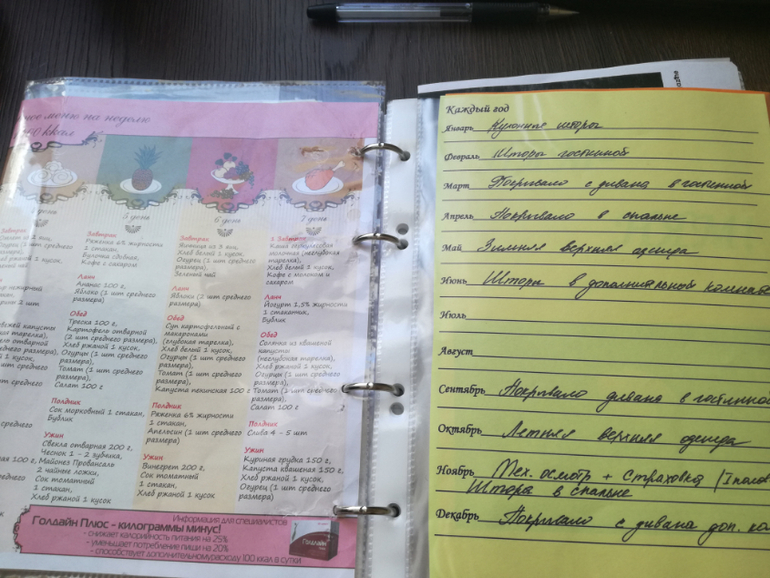 ное меню на неделю
ккал
день
Завтрак
1 шт среднего
1 кусок
1 шт
свежей капусты
тарелка),
1 кусок
1 кусок
5 день
Завтрак
Ряженка 6% жирности
1 стакан,
Булочка сдобная,
Кофе с сахаром
Ланч
Ананас 100 г,
Яблоко (1 шт среднего
размера)
Обед
Треска 100 г,
Картофель отварной
(2 шт среднего размера),
Хлеб ржаной 1 кусок,
Огурец (1 шт среднего
размера),
Томат (1 шт среднего
размера),
Салат 100 г
Полдник
Сок морковный 1 стакан,
Бублик
Ужин
Свекла отварная 200 г,
Чеснок 1 - 2 зубчика,
Майонез Провансаль
2 чайные ложки,
Сок томатный
1 стакан,
Хлеб ржаной 1 кусок
6 день
Завтрак
Яичница из 3 яиц,
Хлеб белый 1 кусок,
Огурец (1 шт среднего
размера),
Зеленый чай
Ланч
Яблоки (2 шт среднего
размера)
Обед
Суп картофельный с
макаронами
(глубокая тарелка),
Хлеб ржаной 1 кусок,
Огурцы (1 шт среднего
размера),
Томат (1 шт среднего
размера),
Капуста пекинская 100 г
Полдник
Ряженка 6% жирности
1 стакан,
Апельсин (1 шт среднего
размера)
Ужин
Винегрет 200 г,
Сок томатный
1 стакан,
Хлеб ржаной 1 кусок
7 день
1 Завтрак
Каша геркулесовая
молочная (неглубокая
тарелка),
Хлеб белый 1 кусок,
Кофе с молоком и
сахаром
Ланч
Йогурт 1,5% жирности
1 стаканчик,
Бублик
Обед
Солянка из квашеной
капусты
(неглубокая тарелка),
Хлеб ржаной 1 кусок,
Огурцы (1 шт среднего
размера),
Томат (1 шт среднего
размера),
Салат 100 г
Полдник
Слива 4 - 5 шт
Ужин
Куриная грудка 150 г,
Капуста квашеная 150 г,
Хлеб ржаной 1 кусок,
Огурец (1 шт среднего
размера)
Голдлайн Плюс - килограммы минус!
Информация для специалистов
- снижает калорийность питания на 25%
- уменьшает потребление пищи на 20%
- способствует дополнительному расходу 100 ккал в сутки
Голдлайн
Каждый год
Январь Кухонные шторы
Февраль Шторы гостинной
Март Покрывало с дивана в гостинной
Апрель Покрывало в спальне
Май Зимняя верхняя одежда
Июнь Шторы в дополнительной комнате
Июль
Август
Сентябрь Покрывало дивана в гостинной
Октябрь Летняя верхняя одежда
Ноябрь Тех. осмотр + Страховка
Штора в спальне
Декабрь Покрывало с дивана доп.